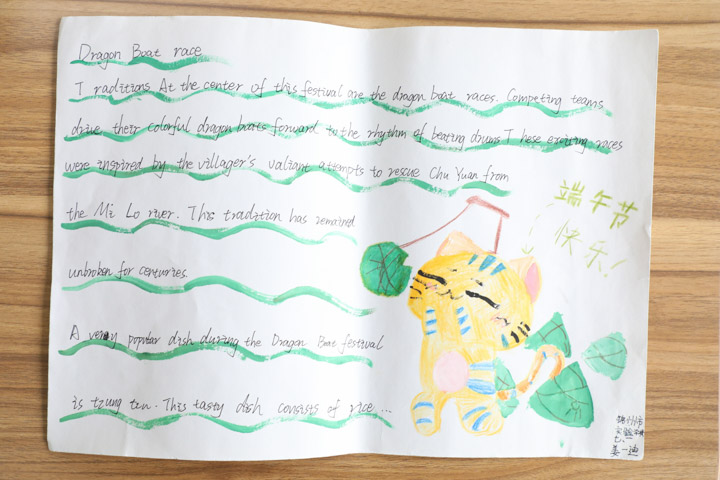 Dragon Boat race
T raditions At the center of this festival are the dragon boat races. Competing teams
drive their colorful dragon boats forward to the rhythm of beating drums T hese exciting races
were inspired by the villager's valiant attempts to rescue Chu Yuan from
the Mi Lo river. This tradition has remained
unbroken for centuries.
A very popular dish during the Dragon Boat festival
is tzung tzu. This tasty dish consists of rice ...
端午节
快乐!
七.一
姜一迪